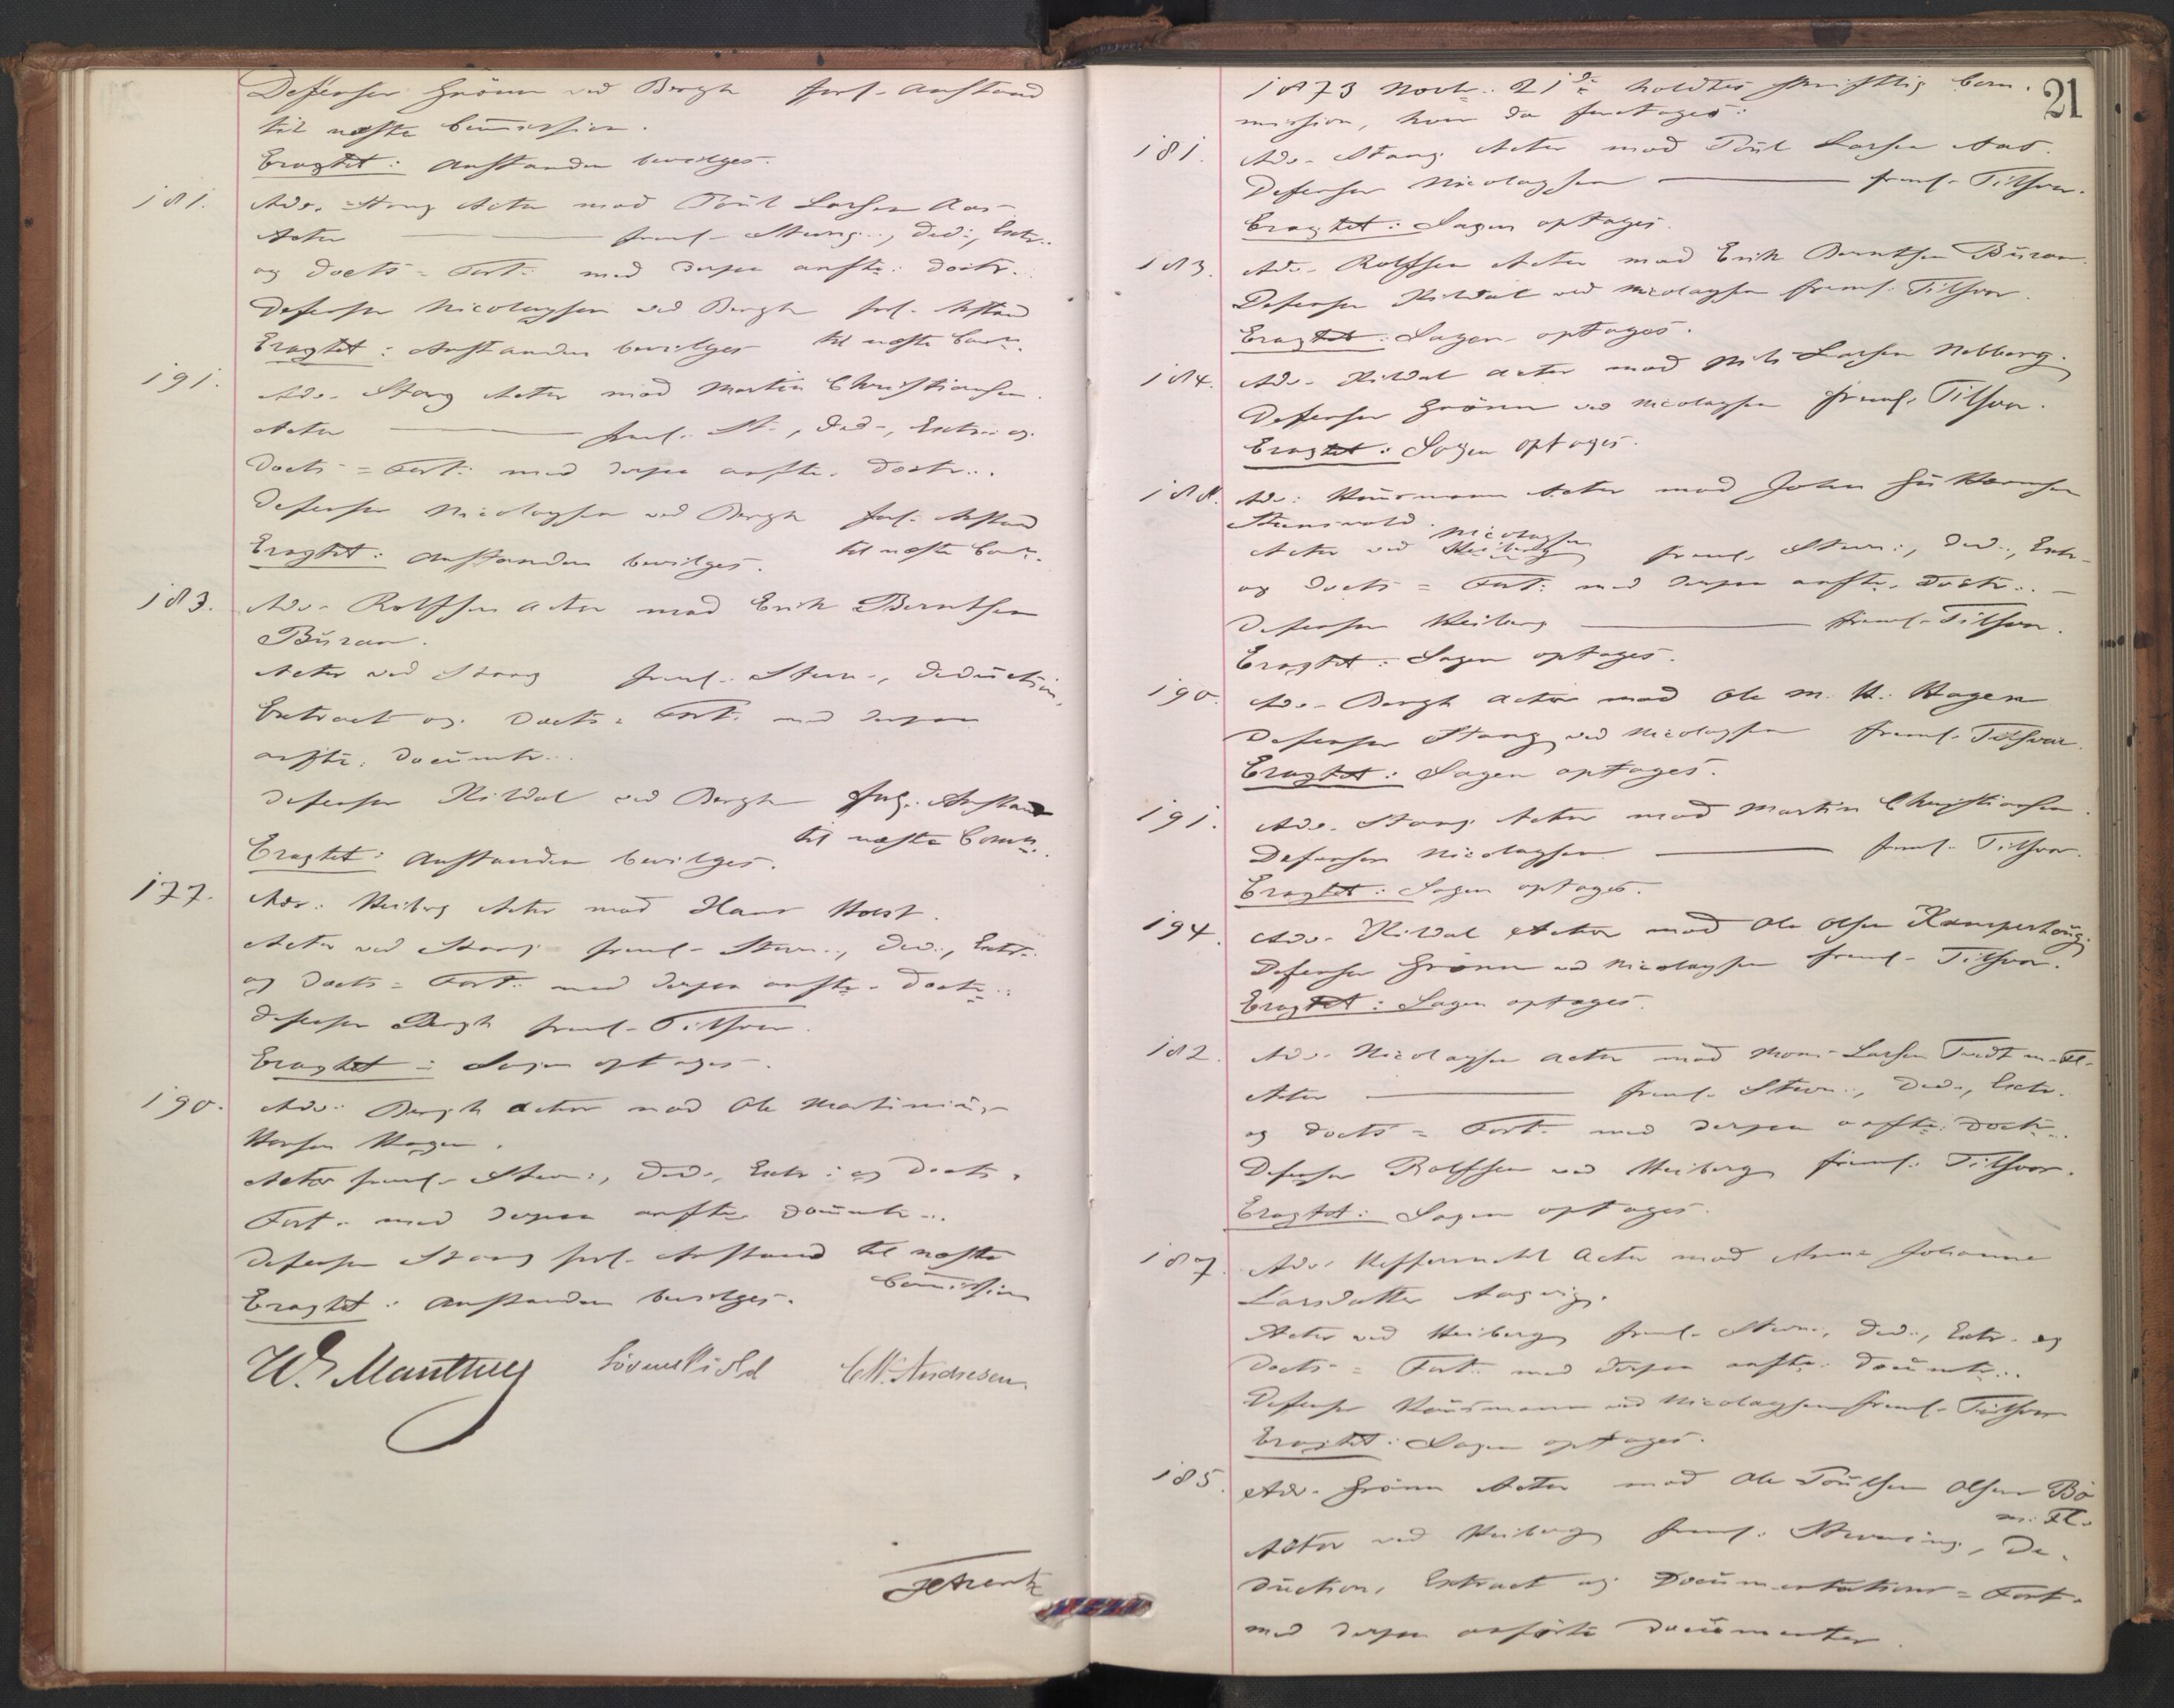 Defensor Grönn ved Bergh forl. Anstand
til næste Commission.
Eragtet: Anstanden bevilges.
181. Adv. Stang Actor mod Poül Larsen Aas
Actor ——— freml. Stevng., Ded., Extr.
og Docts = Fort. med derpaa anfte. Doctr.
Defensor Nicolaysen ved Bergh forl. Anstand
Eragtet: Anstanden bevilges til næste Comm.
191. Adv. Stang Actor mod Martin Christiansen.
Actor ——— freml. St., Ded., Extr. og
Docts = Fort. med derpaa anfte. Doctr.
Defensor Nicolaysen ved Bergh forl. Anstand
Eragtet: Anstanden bevilges. til næste Comm.
183. Adv. Rolffsen Actor mod Erik Berntsen
Büran.
Actor ved Stang freml. Stevn., Dedüction,
Extract og Docts = Fort. med derpaa
anfte. Documtr.
Defensor Kildal ved Bergh forl. Anstand
til næste Comm.
Eragtet: Anstanden bevilges.
177. Adv. Heiberg Actor mod Hans Holst.
Actor ved Stang freml. Stevn., Ded., Extr.
og Docts = Fort. med derpaa anfte. Doctr.
Defensor Bergh freml. Tilsvar.
Eragtet: Sagen optages.
190. Adv. Bergh Actor mod Ole Martiniüs
Hansen Hagen.
Actor freml. Stevn., Ded., Extr. og Docts =
Fort. med derpaa anfte Documtr.
Defensor Stang forl. Anstand til næste
Commission
Eragtet: Anstanden bevilges.
W. Manthey Lövenskiold C.M. Andresen.
1873 Novbr. 21de holdtes skriftlig Com-
21
mission, hvor da foretages:
181. Adv. Stang Actor mod Poül Larsen Aas.
Defensor Nicolaysen ——— freml. Tilsvar.
Eragtet: Sagen optages.
183. Adv. Rolffsen Actor mod Erik Berntsen Büran.
Defensor Kildal ved Nicolaysen freml. Tilsvar.
Eragtet: Sagen optages.
184. Adv. Kildal Actor mod Nils Larsen Nebberg.
Defensor Grönn ved Nicolaysen freml. Tilsvar.
Eragtet: Sagen optages.
188. Adv. Haüsmann Actor mod John
Nicolaysen
Actor ved Heiberg freml. Stevn., Ded., Extr.
og Docts = Fort. med derpaa anfte. Doctr.
Defensor Heiberg ——— freml. Tilsvar.
Eragtet: Sagen optages.
190. Adv. Bergh Actor mod Ole M. H. Hagen
Defensor Stang ved Nicolaysen freml. Tilsvar.
Eragtet: Sagen optages.
191. Adv. Stang Actor mod Martin Christiansen.
Defensor Nicolaysen ——— freml. Tilsvar.
Eragtet: Sagen optages.
194. Adv. Kildal Actor mod Ole Olsen Kamperhaüg.
Defensor Grönn ved Nicolaysen freml. Tilsvar.
Eragtet: Sagen optages.
182. Adv. Nicolaysen Actor mod Mons Larsen Tvedt m. Fl.
Actor ——— freml. Stevn., Ded., Extr.
og Docts = Fort. med derpaa anfte. Doctr.
Defensor Rolffsen ved Heiberg freml. Tilsvar.
Eragtet: Sagen optages.
187. Adv. Heffermehl Actor mod Anne Johanne
Larsdatter
Actor ved Heiberg freml. Stevn., Ded., Extr. og
Docts = Fort. med derpaa anfte. Documtr.
Defensor Haüsmann ved Nicolaysen freml. Tilsvar
Eragtet: Sagen optages.
185. Adv. Grönn Actor mod Ole Poülsen Olsen Bö
m. Fl.
Actor ved Heiberg freml. Stevning, De-
düction, Extract og Documentations = Fort.
med derpaa anförte Documenter.